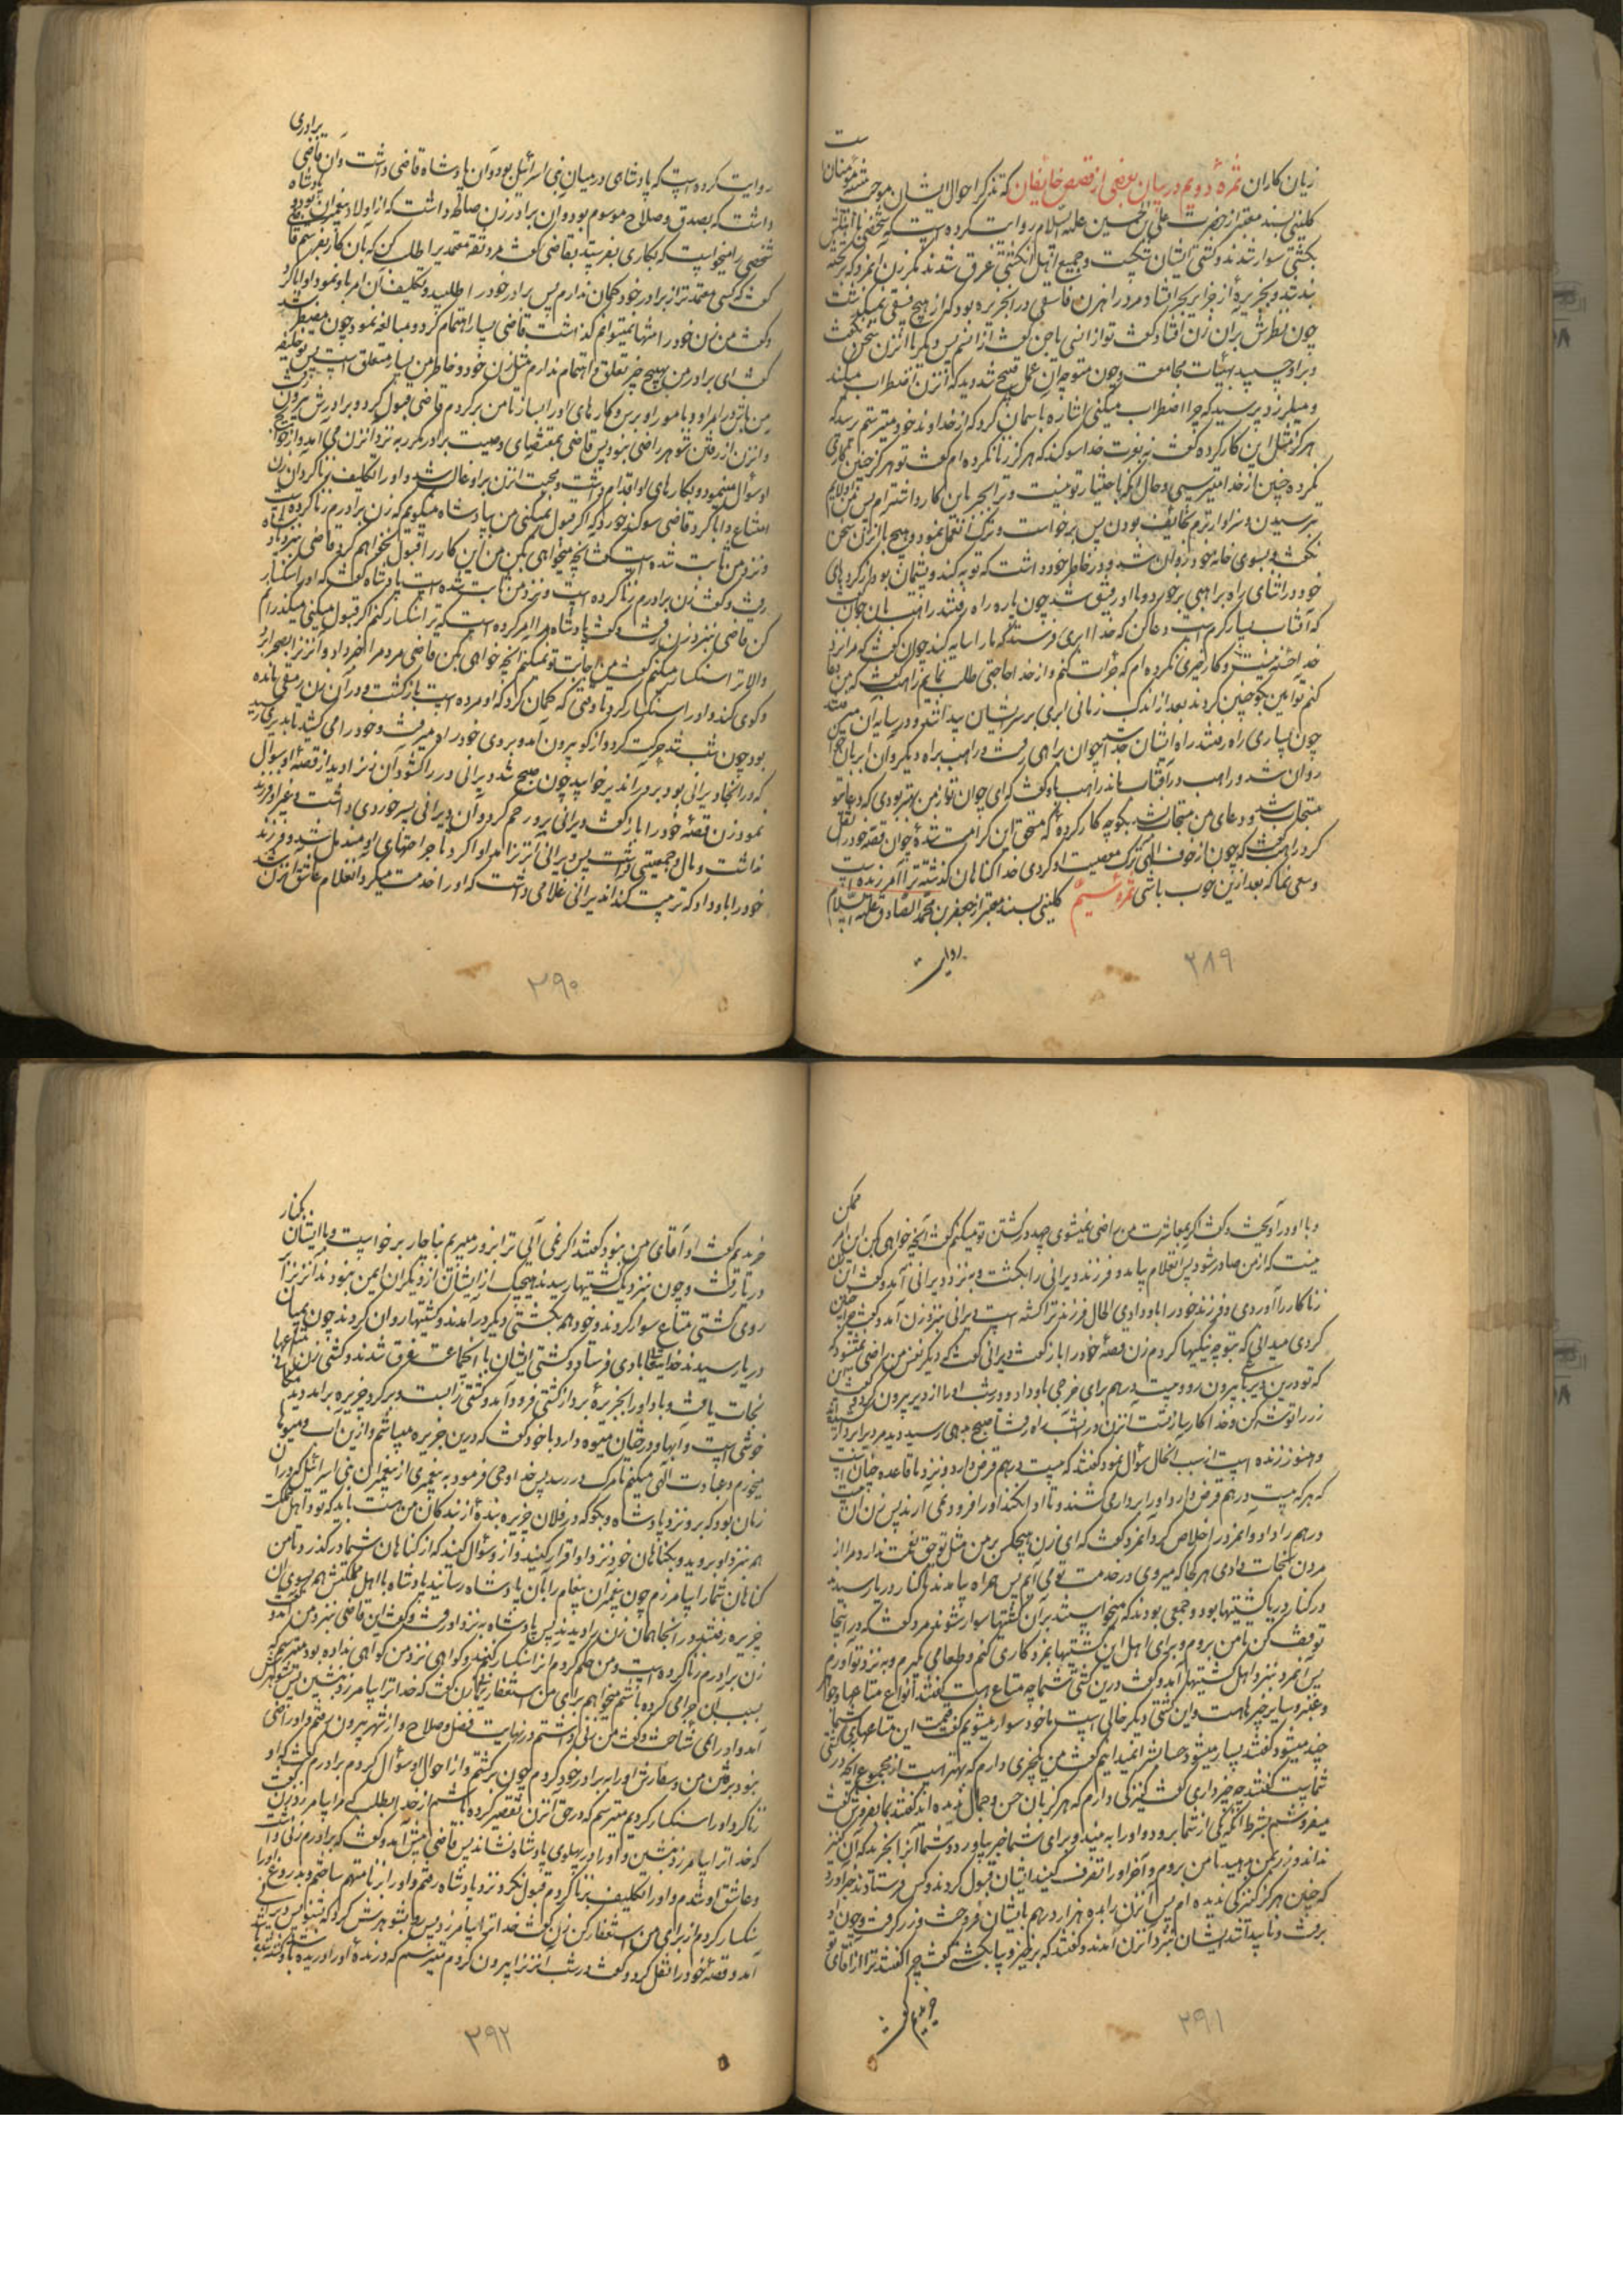 زیان کاران ثمرهٔ دویم در بیان بعضی از قصص خایفان که تذکر احوال ایشان موجب تنبه مؤمنان است
کلینی بسند معتبر از حضرت علی بن الحسین علیه السلام روایت کرده است که شخصی با اهلش
بکشتی سوار شدند و کشتی ایشان شکست و جمیع اهل آن کشتی غرق شدند مگر زن آنمرد که بر تخته
بند شد و بجزیرهٔ از جزایر بحر افتاد و در آن جزیره مرد راهزن فاسقی بود که از هیچ فسقی نمیگذشت
چون نظرش بران زن افتاد گفت تو از انسی یا جن گفت از انسم پس دیگر با آنزن سخن نگفت
و براو چسپید بهیأت مجامعت و چون متوجه آن عمل قبیح شد دید که آنزن اضطراب میکند
و میلرزد پرسید که چرا اضطراب میکنی اشاره باسمان کرد که از خداوند خود میترسم پرسید که
هرگز مثل این کار کرده گفت نه بعزت خدا سوکند که هرگز زنا نکرده ام گفت تو هرگز چنین کاری
نکرده چنین از خدا میترسی و حال آنکه باختیار تو نیست و ترا بجبر باین کار داشته ام پس من اولایم
بترسیدن و سزاوارترم بخایف بودن پس برخواست و ترک آن عمل نمود و هیچ با آن زن سخن
نگفت و بسوی خانه خود روان شد و در خاطر خود داشت که توبه کند و پشیمان بود از کرده‌های
خود در اثنای راه براهبی برخورد و با او رفیق شد چون پاره راه رفتند راهب بان جوان گفت
که آفتاب بسیار گرم است دعا کن که خدا ابری فرستد که ما را سایه کند جوان گفت که مرا نزد
خدا حسنه نیست و کار خیری نکرده ام که جرأت کنم و از خدا حاجتی طلب نمایم راهب گفت که من دعا
کنم تو آمین بگو چنین کردند بعد از اندک زمانی ابری بر سر ایشان پیدا شد و در سایه آن میرفتند
چون بسیاری راه رفتند راه ایشان جدا شد جوان براهی رفت و راهب براه دیگر و آن ابر با جوان
روان شد و راهب در آفتاب ماند راهب باو گفت که ای جوان تو از من بهتر بودی که دعای تو
مستجاب شد و دعای من مستجاب نشد بگو چه کار کردهٔ که مستحق این کرامت شدهٔ جوان قصه خود را نقل
کرد راهب گفت که چون از خوف الهی ترک معصیت او کردی خدا گناهان گذشته ترا آمرزیده است
و سعی نما که بعد ازین خوب باشی ثمره سیم کلینی بسند معتبر از جعفر بن محمد الصادق علیه السلام
روایت
۲۸۹
روایت کرده است که پادشاهی در میان بنی اسرائیل بود و آن پادشاه قاضی داشت و آن قاضی برادری
داشت که بصدق و صلاح موسوم بود و آن برادر زن صالحه داشت که از اولاد پیغمبران بود و پادشاه
شخصی را میخواست که بکاری بفرستد بقاضی گفت مرد ثقه معتمدی را طلب کن که بآن کار بفرستم قاضی
گفت که کسی معتمد تر از برادر خود گمان ندارم پس برادر خود را طلبید و تکلیف آن امر باو نمود او ابا کرد
و گفت من زن خود را تنها نمیتوانم گذاشت قاضی بسیار اهتمام کرد و مبالغه نمود چون مضطر شد
گفت ای برادر من بهیچ چیز تعلق و اهتمام ندارم مثل زن خود و خاطر من بسیار متعلق است پس تو خلیفه
من باش در امر او و بامور او برس و کارهای او را بساز تا من برگردم قاضی قبول کرد و برادرش بیرون رفت
و آنزن از رفتن شوهر راضی نبود پس قاضی بمقتضای وصیت برادر مکرر به نزد آنزن می آمد و از حوایج
او سؤال مینمود و بکارهای او اقدام داشت و محبت آنزن براو غالب شد و او را تکلیف زنا کرد آن زن
امتناع و ابا کرد قاضی سوگند خورد که اگر قبول نمیکنی من بپادشاه میگویم که زن برادرم زنا کرده است
و نزد من ثابت شده است گفت آنچه میخواهی بکن من این کار را قبول نخواهم کرد قاضی بنزد پادشاه
رفت و گفت زن برادرم زنا کرده است و نزد من ثابت شده است پادشاه گفت که او را سنگسار
کن قاضی بنزد زن رفت و گفت پادشاه مرا امر کرده است که ترا سنگسار کنم اگر قبول میکنی میگذرانم
والا ترا سنگسار میکنم گفت من اجابت تو نمیکنم آنچه خواهی بکن قاضی مردم را خبر داد و آنزن را بصحرا برد
و گوی کند و او را سنگسار کرد تا وقتی که گمان کرد که او مرده است بازگشت و در آن زن رمقی مانده
بود چون شب شد حرکت کرد و از گو بیرون آمد و بروی خود راه میرفت و خود را می کشید تا بدیری رسید
که در آنجا دیرانی بود بر در آن دیر خوابید چون صبح شد دیرانی در را گشود آن زن را دید از قصهٔ او سؤال
نمود زن قصهٔ خود را باز گفت دیرانی برو رحم کرد و آن دیرانی پسر خوردی داشت و غیر او فرزند
نداشت و مال و جمعیتی داشت پس دیرانی آنزن را مداوا کرد تا جراحتهای او مندمل شد و فرزند
خود را باو داد که تربیت کند آن دیرانی غلامی داشت که او را خدمت میکرد آن غلام عاشق آنزن شد
۲۹۰
و با او در آویخت و گفت اگر بمعاشرت من راضی نمیشوی جهد در کشتن تو میکنم گفت آنچه خواهی بکن این امر ممکن
نیست که از من صادر شود پس آن غلام بیامد و فرزند دیرانی را بکشت و به نزد دیرانی آمد و گفت این زن
زناکار را آوردی و فرزند خود را باو دادی الحال فرزند ترا کشته است دیرانی بنزد زن آمد و گفت چرا چنین
کردی میدانی که بتو چه نیکیها کردم زن قصهٔ خود را باز گفت دیرانی گفت که دیگر نفس من راضی نمیشود که
که تو درین دیر باشی بیرون رو و بیست درهم برای خرجی باو داد و در شب او را از دیر بیرون کرد و گفت این
زر را توشه کن و خدا کارساز تست آنزن در آن شب راه رفت تا صبح بدهی رسید دید مردی را بردار کشیده‌اند
و هنوز زنده است از سبب آن حال سؤال نمود گفتند که بیست درهم قرض دارد و نزد ما قاعده چنان است
که هر که بیست درهم قرض دارد او را بردار می کشند و تا ادا نکند او را فرود نمی آرند پس زن آن بیست
درهم را داد و آنمرد را خلاص کرد آنمرد گفت که ای زن هیچکس بر من مثل تو حق نعمت ندارد مرا از
مردن نجات دادی هر جا که میروی در خدمت تو می آیم پس همراه بیامدند تا کنار دریا رسیدند
در کنار دریا کشتیها بود و جمعی بودند که میخواستند بر آن کشتیها سوار شوند مرد گفت که در اینجا
توقف کن تا من بروم و برای اهل این کشتیها بمزد کاری کنم و طعامی بگیرم و به نزد تو آورم
پس آنمرد بنزد اهل کشتیها آمد و گفت درین کشتی شما چه متاع هست گفتند انواع متاعها و جواهر
و عنبر و سایر چیزها هست و این کشتی دیگر خالی است ما خود سوار میشویم گفت قیمت این متاعهای شما
چند میشود گفتند بسیار میشود حسابش نمیدانیم گفت من یک چیزی دارم که بهتر است از مجموع آنچه در کشتی
شماست گفتند چه چیز داری گفت کنیزکی دارم که هرگز بآن حسن و جمال ندیده اید گفتند بما بفروش گفت
میفروشم بشرط آنکه یکی از شما برود و او را به بیند و برای شما خبر بیاورد و شما آنرا بخرید که آن کنیز
نداند و زر بمن بدهید تا من بروم و آخر او را تصرف کنید ایشان قبول کردند و کس فرستادند خبر آورد
که چنین هرگز کنیزکی ندیده ام پس آنزن را بده هزار درهم بایشان فروخت و زر گرفت و چون او
برفت و ناپیدا شد ایشان بنزد آنزن آمدند و گفتند که برخیز و بیا بکشتی گفت چرا گفتند ترا از آقای تو
خریدیم گفت
۲۹۱
خریدیم گفت او آقای من نبود گفتند اگر نمی آیی ترا بزور میبریم بناچار برخواست و با ایشان بکنار
دریا رفت و چون نزدیک کشتیها رسیدند هیچیک از ایشان از دیگران ایمن نبودند آنزن را
روی کشتی متاع سوار کردند و خود همه بکشتی دیگر درآمدند و کشتیها روان کردند چون بمیان
دریا رسیدند خدایتعالی بادی فرستاد و کشتی ایشان با آنجماعت غرق شدند و کشتی زن با متاعها
نجات یافت و باد او را بجزیرهٔ برد از کشتی فرود آمد و کشتی را ببست و بر گرد جزیره برآمد دید مکان
خوشی است و آبها و درختان میوه دارد با خود گفت که درین جزیره میباشم و ازین آب و میوها
میخورم و عبادت الهی میکنم تا مرگ در رسد پس خدا وحی فرمود به پیغمبری از پیغمبران بنی اسرائیل که در آن
زمان بود که برو نزد پادشاه و بگو که در فلان جزیره بندهٔ از بندگان من هست باید که تو و اهل مملکت
همه بنزد او بروید و بگناهان خود نزد او اقرار کنید و از او سؤال کنید که از گناهان شما درگذرد تا من
گناهان شما را بیامرزم چون پیغمبر آن پیغام را بآن پادشاه رسانید پادشاه با اهل مملکتش همه بسوی آن
جزیره رفتند و در آنجا همان زن را دیدند پس پادشاه به نزد او رفت و گفت این قاضی بنزد من آمد و گفت
زن برادرم زنا کرده است و من حکم کردم او را سنگسار کنند و گواهی نزد من گواهی نداده بود میترسم که
بسبب آن حرامی کرده باشم میخواهم برای من استغفار نمایی زن گفت که خدا ترا بیامرزد بنشین پس شوهرش
آمد و او را نمی شناخت و گفت من زنی داشتم در نهایت فضل و صلاح و از شهر بیرون رفتم و او راضی
نبود برفتن من و سفارش او را به برادر خود کردم چون برگشتم و از احوال او سؤال کردم برادرم گفت که او
زنا کرد و او را سنگسار کردیم میترسم که در حق آنزن تقصیر کرده باشم از خدا بطلب که مرا بیامرزد زن گفت
که خدا ترا بیامرزد بنشین و او را در پهلوی پادشاه نشاند پس قاضی پیش آمد و گفت که برادرم زنی داشت
و عاشق او شدم و او را تکلیف بزنا کردم قبول نکرد و نزد پادشاه رفتم و او را بزنا متهم ساختم و بدروغ او را
سنگسار کردم از برای من استغفار کن زن گفت خدا ترا بیامرزد پس رو بشوهرش کرد که بشنو پس دیرانی
آمد و قصهٔ خود را نقل کرد و گفت در شب آنزن را بیرون کردم میترسم که درندهٔ او را دریده باشد
۲۹۲